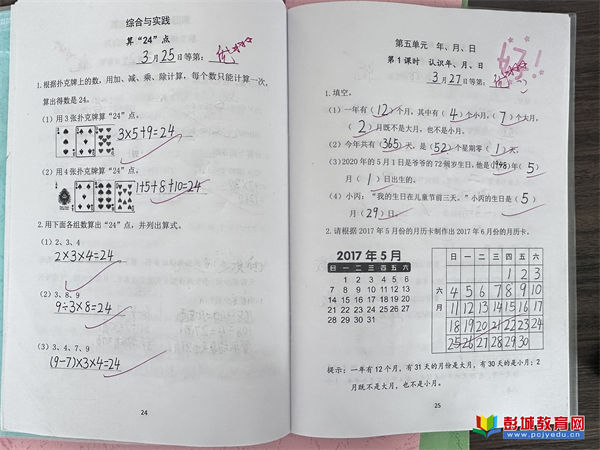 综合与实践
算“24”点
3月25日等第：优
1.根据扑克牌上的数，用加、减、乘、除计算，每个数只能计算一次，
算出得数是24。
(1) 用3张扑克牌算“24”点。
3×5+9=24
(2) 用4张扑克牌算“24”点。
1+5+8+10=24
2.用下面各组数算出“24”点，并列出算式。
(1) 2、3、4
2×3×4=24
(2) 3、8、9
9÷3×8=24
(3) 3、4、7、9
(9-7)×3×4=24
24
第五单元 年、月、日
第1课时 认识年、月、日
3月27日等第：优
1.填空。
(1) 一年有（12）个月，其中有（4）个小月，（7）个大月，
（2）月既不是大月，也不是小月。
(2) 今年共有（365）天，是（52）个星期零（1）天。
(3) 2020年的5月1日是爷爷的72周岁生日，他是（1948）年（5）
月（1）日出生的。
(4) 小丙：“我的生日在儿童节前三天。”小丙的生日是（5）
月（29）日。
2.请根据2017年5月份的月历卡制作出2017年6月份的月历卡。
2017年5月
日 一 二 三 四 五 六
1 2 3 4 5 6
7 8 9 10 11 12 13
14 15 16 17 18 19 20
21 22 23 24 25 26 27
28 29 30 31
六月
日 一 二 三 四 五 六
1 2 3
4 5 6 7 8 9 10
11 12 13 14 15 16 17
18 19 20 21 22 23 24
25 26 27 28 29 30
提示：一年有12个月，有31天的月份是大月，有30天的是小月；2
月既不是大月，也不是小月。
25
彭城教育网
www.pcjyedu.cn